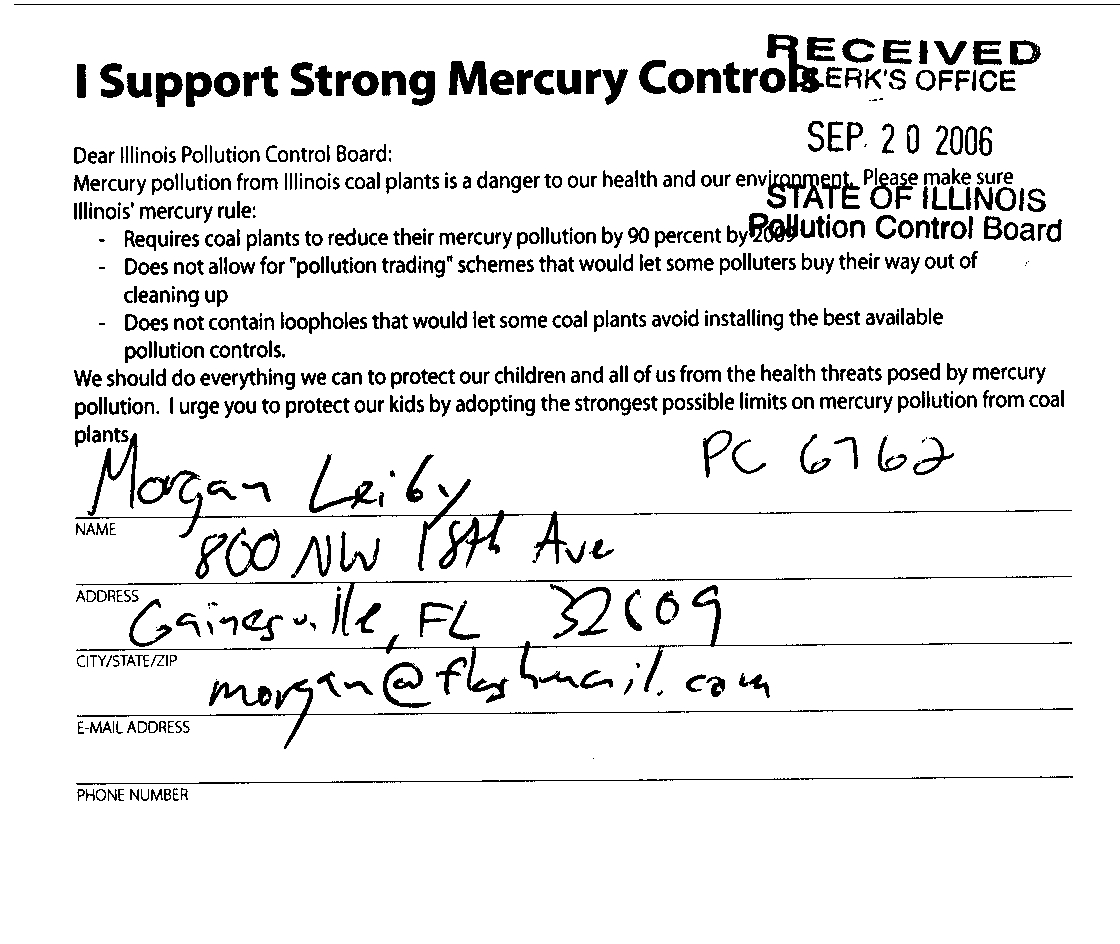 RECEIVED
I Support Strong Mercury Controls
CLERK'S OFFICE
SEP 20 2006
Dear Illinois Pollution Control Board:
Mercury pollution from Illinois coal plants is a danger to our health and our environment. Please make sure
STATE OF ILLINOIS
Illinois' mercury rule:
Pollution Control Board
- Requires coal plants to reduce their mercury pollution by 90 percent by 2009
- Does not allow for "pollution trading" schemes that would let some polluters buy their way out of
cleaning up
- Does not contain loopholes that would let some coal plants avoid installing the best available
pollution controls.
We should do everything we can to protect our children and all of us from the health threats posed by mercury
pollution. I urge you to protect our kids by adopting the strongest possible limits on mercury pollution from coal
plants.
PC 6762
Morgan Leiby
NAME
800 NW 18th Ave
ADDRESS
Gainesville, FL 32609
CITY/STATE/ZIP
morgan@flashmail.com
E-MAIL ADDRESS
PHONE NUMBER